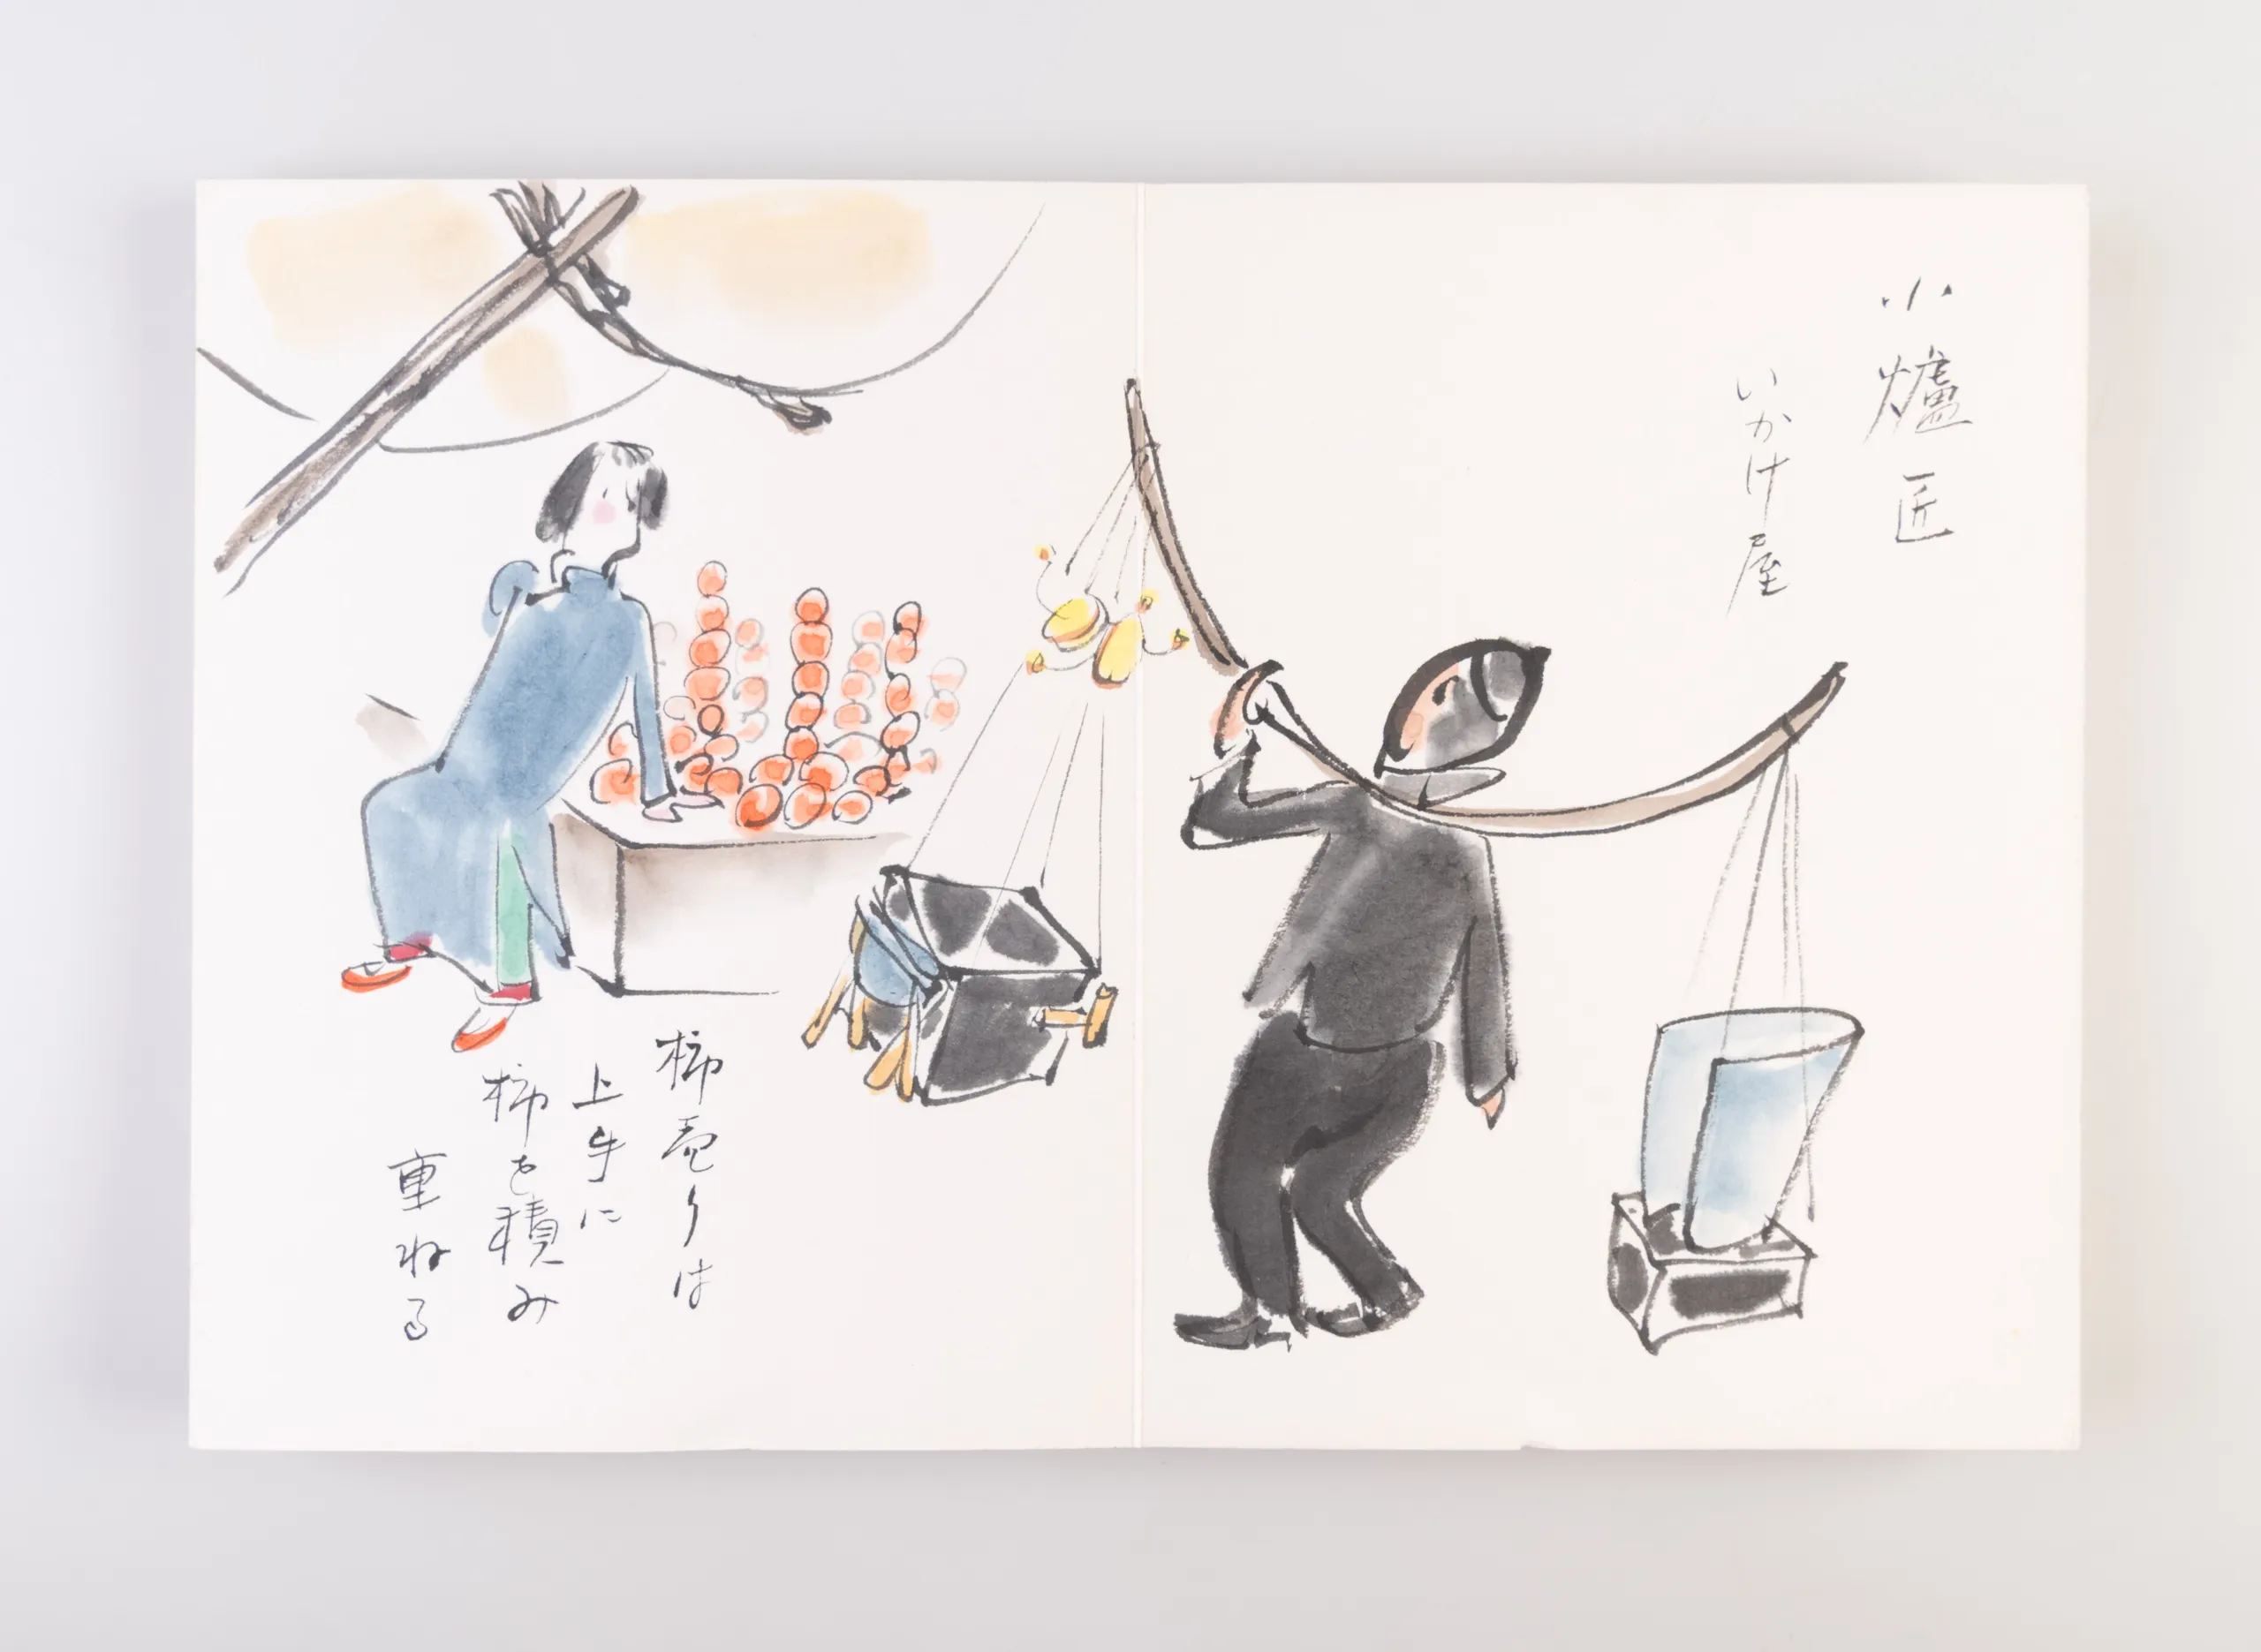 小爐匠
いかけ屋
柿売りは
上手に
柿を積み
重ねる